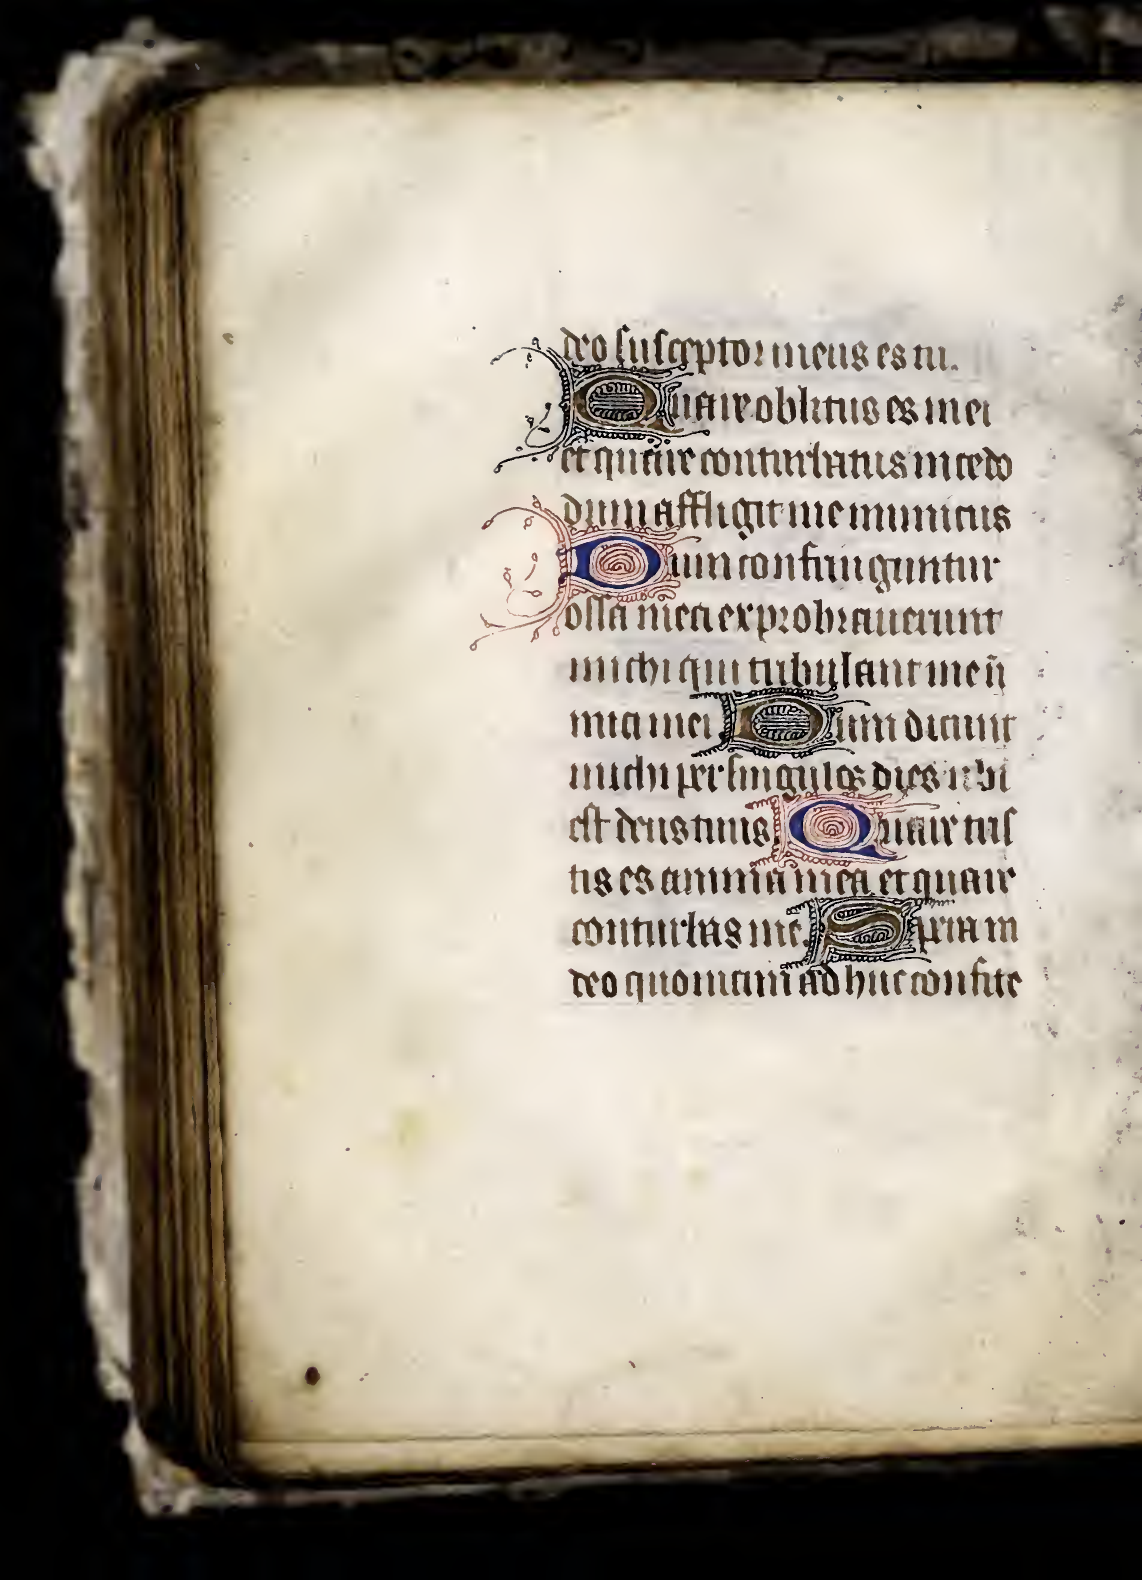 deo susceptor meus es tu.
Quare oblitus es mei
et quare conturbatus incedo
dum affligit me inimicus
Dum confringuntur
ossa mea exprobrauerunt
michi qui tribulant me in̄
mici mei Dum dicunt
michi per singulos dies ubi
est deus tuus. Quare tris
tis es anima mea et quare
conturbas me. Spera in
deo quoniam ad huc confite